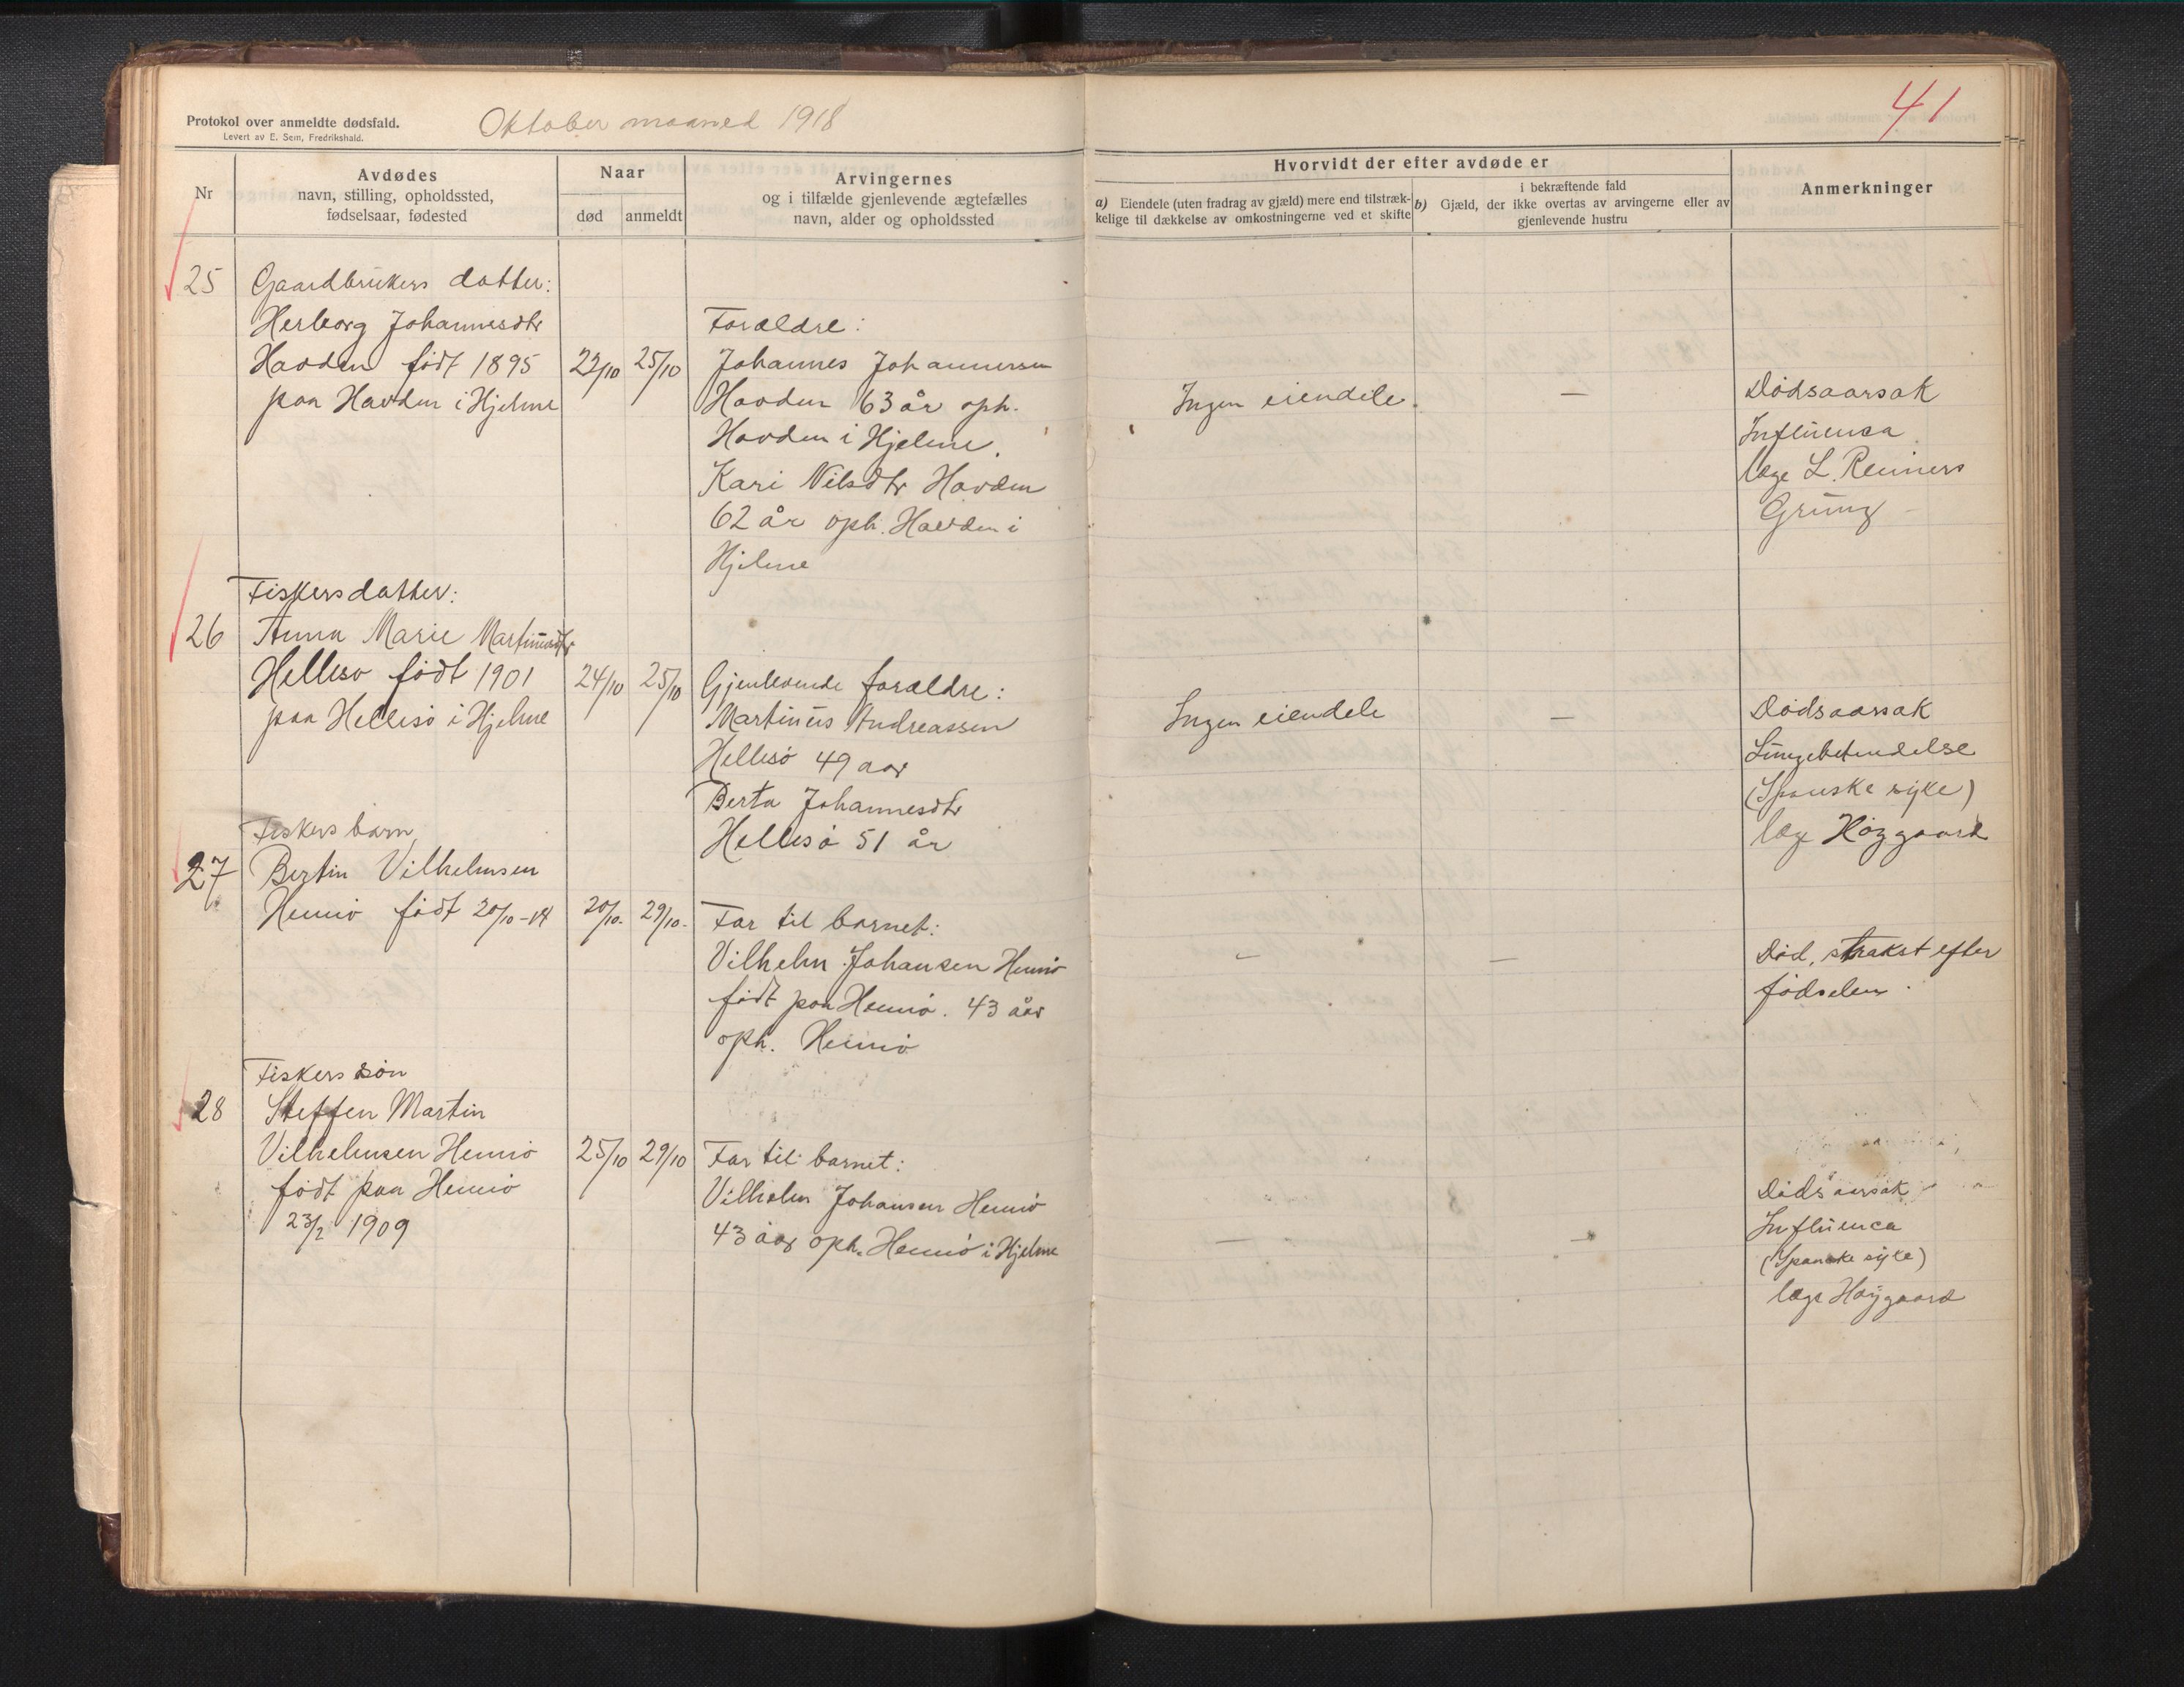 Protokol over anmeldte dødsfald.
Levert av E. Sem, Fredrikshald.
Oktober maaned 1918
41
Nr
Avdødes
navn, stilling, opholdssted,
fødselsaar, fødested
Naar
død
anmeldt
Arvingernes
og i tilfælde gjenlevende ægtefælles
navn, alder og opholdssted
Hvorvidt der efter avdøde er
a) Eiendele (uten fradrag av gjæld) mere end tilstræk-
kelige til dækkelse av omkostningerne ved et skifte
i bekræftende fald
b) Gjæld, der ikke overtas av arvingerne eller av
gjenlevende hustru
Anmerkninger
25
Gaardbrukers datter:
Herborg Johannesdtr
Havden født 1895
paa Havden i Hjelme
22/10
25/10
Forældre:
Johannes Johannersen
Havden 63 år oph.
Havden i Hjelme.
Kari Nilsdtr Havden
62 år oph. Havden i
Hjelme
Ingen eiendele.
—
Dødsaarsak
Influensa
læge L. Reimers
Grung
26
Fiskersdatter:
Anna Marie Martinusdtr
Hellesø født 1901
paa Hellesø i Hjelme
24/10
25/10
Gjenlevende forældre:
Martinus Andreassen
Hellesø 49 aar
Berta Johannesdtr
Hellesø 51 år
Ingen eiendele
—
Dødsaarsak
Lungebetendelse
(Spanske syke)
læge Høygaard
27
Fiskers barn
Bertin Vilhelmsen
Hernø født 20/10-18
20/10.
29/10.
Far til barnet:
Vilhelm Johansen Hernø
født paa Hernø. 43 åar
oph. Hernø
—
—
Død, strakst efter
fødselen.
28
Fiskers søn
Steffen Martin
Vilhelmsen Hernø
født paa Hernø
23/2 1909
25/10
29/10
Far til barnet:
Vilhelm Johansen Hernø
43 åar oph. Hernø i Hjelme
—
—
Dødsaarsak
Influenca
(Spanske syke)
læge Høygaard